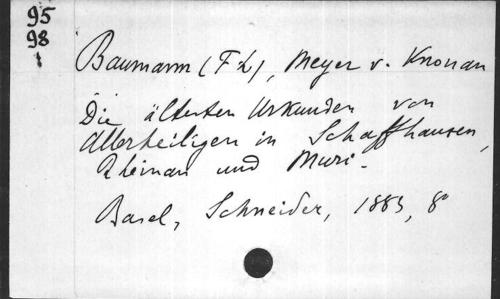 95
98
1
Baumann (F L), Meyer v. Knonau
Die ältesten Urkunden von
Allerheiligen in Schaffhausen,
Rheinau und Muri.
Basel, Schneider, 1883, 8°